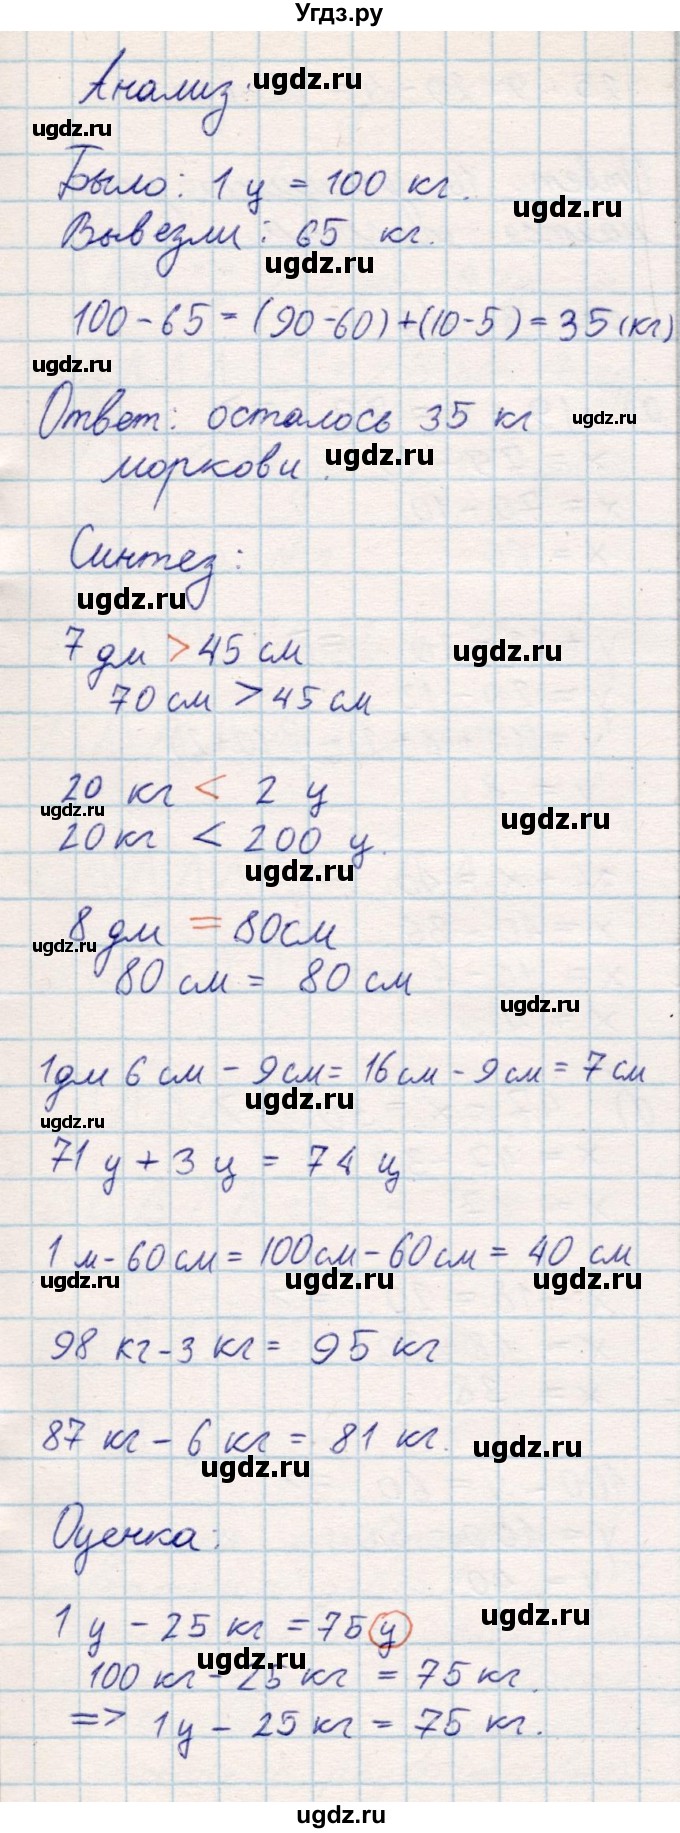 Угдз.ру
Анализ:
ugdz.ru
ugdz.ru
Было: 1 ц = 100 кг.
ugdz.ru
Вывезли: 65 кг.
ugdz.ru
100 - 65 = (90-60)+(10-5) = 35 (кг)
ugdz.ru
Ответ: осталось 35 кг
ugdz.ru
моркови.
ugdz.ru
Синтез:
ugdz.ru
7 дм > 45 см
ugdz.ru
70 см > 45 см
20 кг < 2 ц
ugdz.ru
ugdz.ru
20 кг < 200 ц.
ugdz.ru
8 дм = 80 см
ugdz.ru
80 см = 80 см
ugdz.ru
1 дм 6 см - 9 см = 16 см - 9 см = 7 см
ugdz.ru
ugdz.ru
71 ц + 3 ц = 74 ц
1 м - 60 см = 100 см - 60 см = 40 см
ugdz.ru
ugdz.ru
ugdz.ru
98 кг - 3 кг = 95 кг
87 кг - 6 кг = 81 кг.
ugdz.ru
ugdz.ru
Оценка:
1 ц - 25 кг = 75 ц
ugdz.ru
ugdz.ru
100 кг - 25 кг = 75 кг.
=> 1 ц - 25 кг = 75 кг.
ugdz.ru